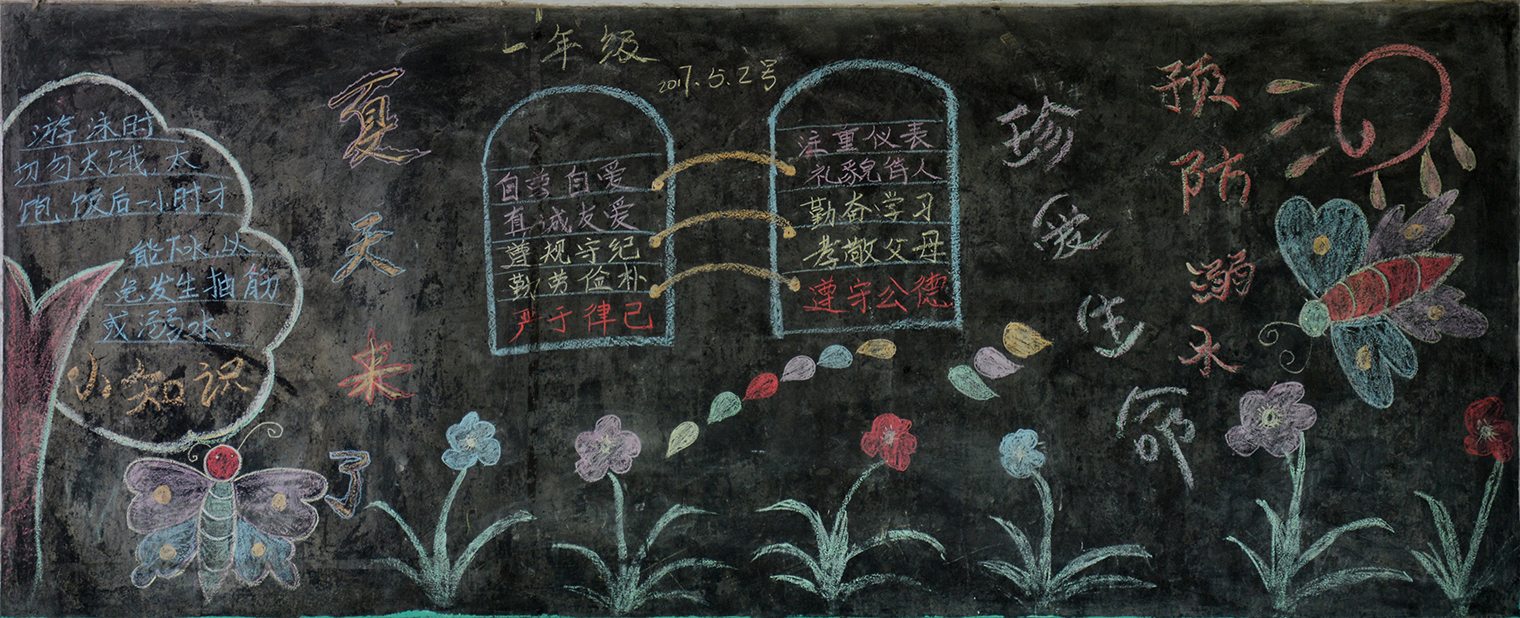 游泳时
切勿太饿,太
饱,饭后一小时才
能下水,以
免发生抽筋
或溺水。
小知识
夏天来了
一年级
2017.5.2号
自尊自爱
真诚友爱
遵规守纪
勤劳俭朴
严于律己
注重仪表
礼貌待人
勤奋学习
孝敬父母
遵守公德
珍爱生命
预防溺水